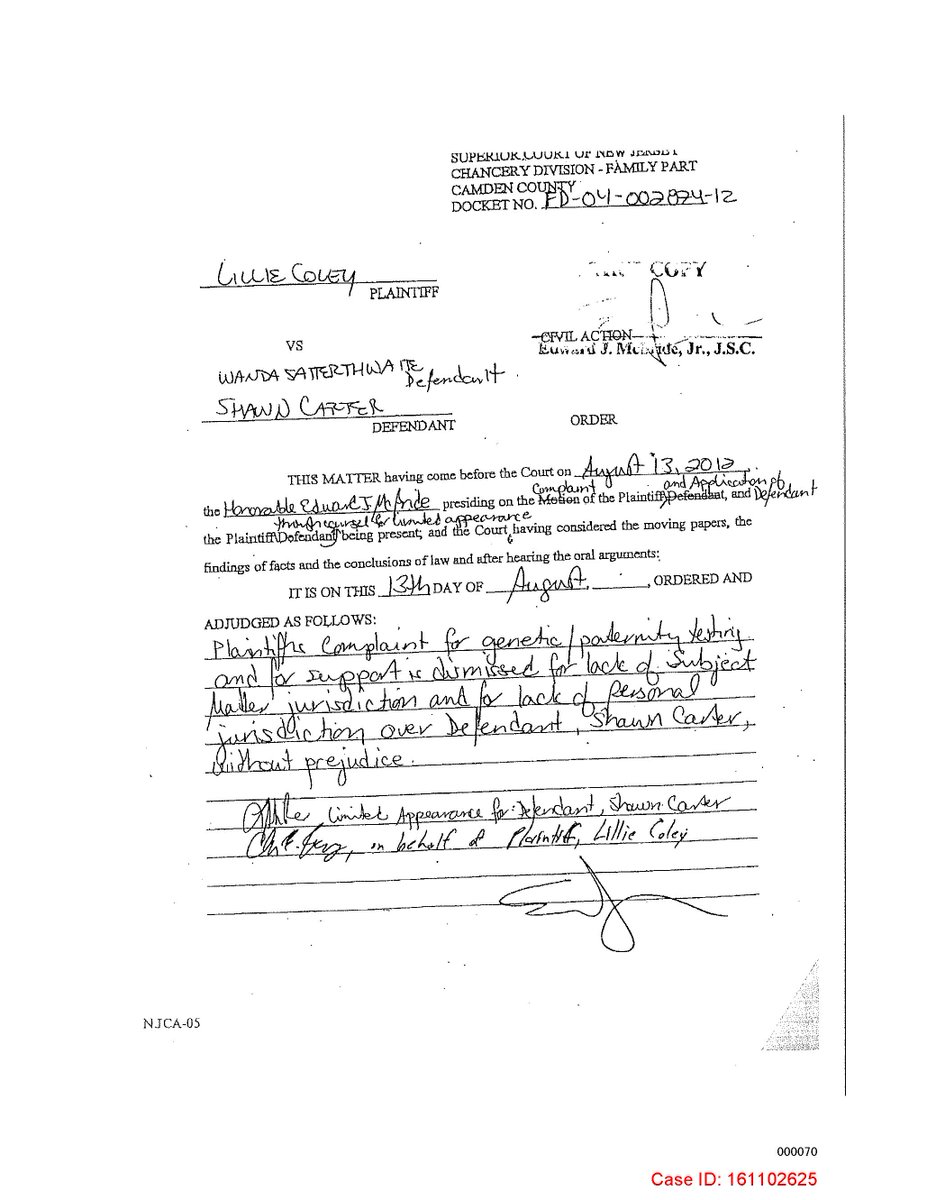 SUPERIOR COURT OF NEW JERSEY
CHANCERY DIVISION - FAMILY PART
CAMDEN COUNTY
DOCKET NO. FD-04-002874-12
LILLIE COLEY
PLAINTIFF
COPY
CIVIL ACTION
Edward J. McBride, Jr., J.S.C.
VS
WANDA SATTERTHWAITE
Defendant
SHAWN CARTER
DEFENDANT
ORDER
THIS MATTER having come before the Court on August 13, 2012
Complaint and Application of
the Honorable Edward J McBride presiding on the Motion of the Plaintiff\Defendant, and Defendant
through counsel for limited appearance
the Plaintiff\Defendant being present, and the Court having considered the moving papers, the
findings of facts and the conclusions of law and after hearing the oral arguments:
IT IS ON THIS 13th DAY OF August, ORDERED AND
ADJUDGED AS FOLLOWS:
Plaintiff's Complaint for genetic/paternity testing
and for support is dismissed for lack of Subject
Matter jurisdiction and for lack of personal
jurisdiction over Defendant, Shawn Carter,
without prejudice.
Limited Appearance for: Defendant, Shawn Carter
on behalf of Plaintiff, Lillie Coley
NJCA-05
000070
Case ID: 161102625